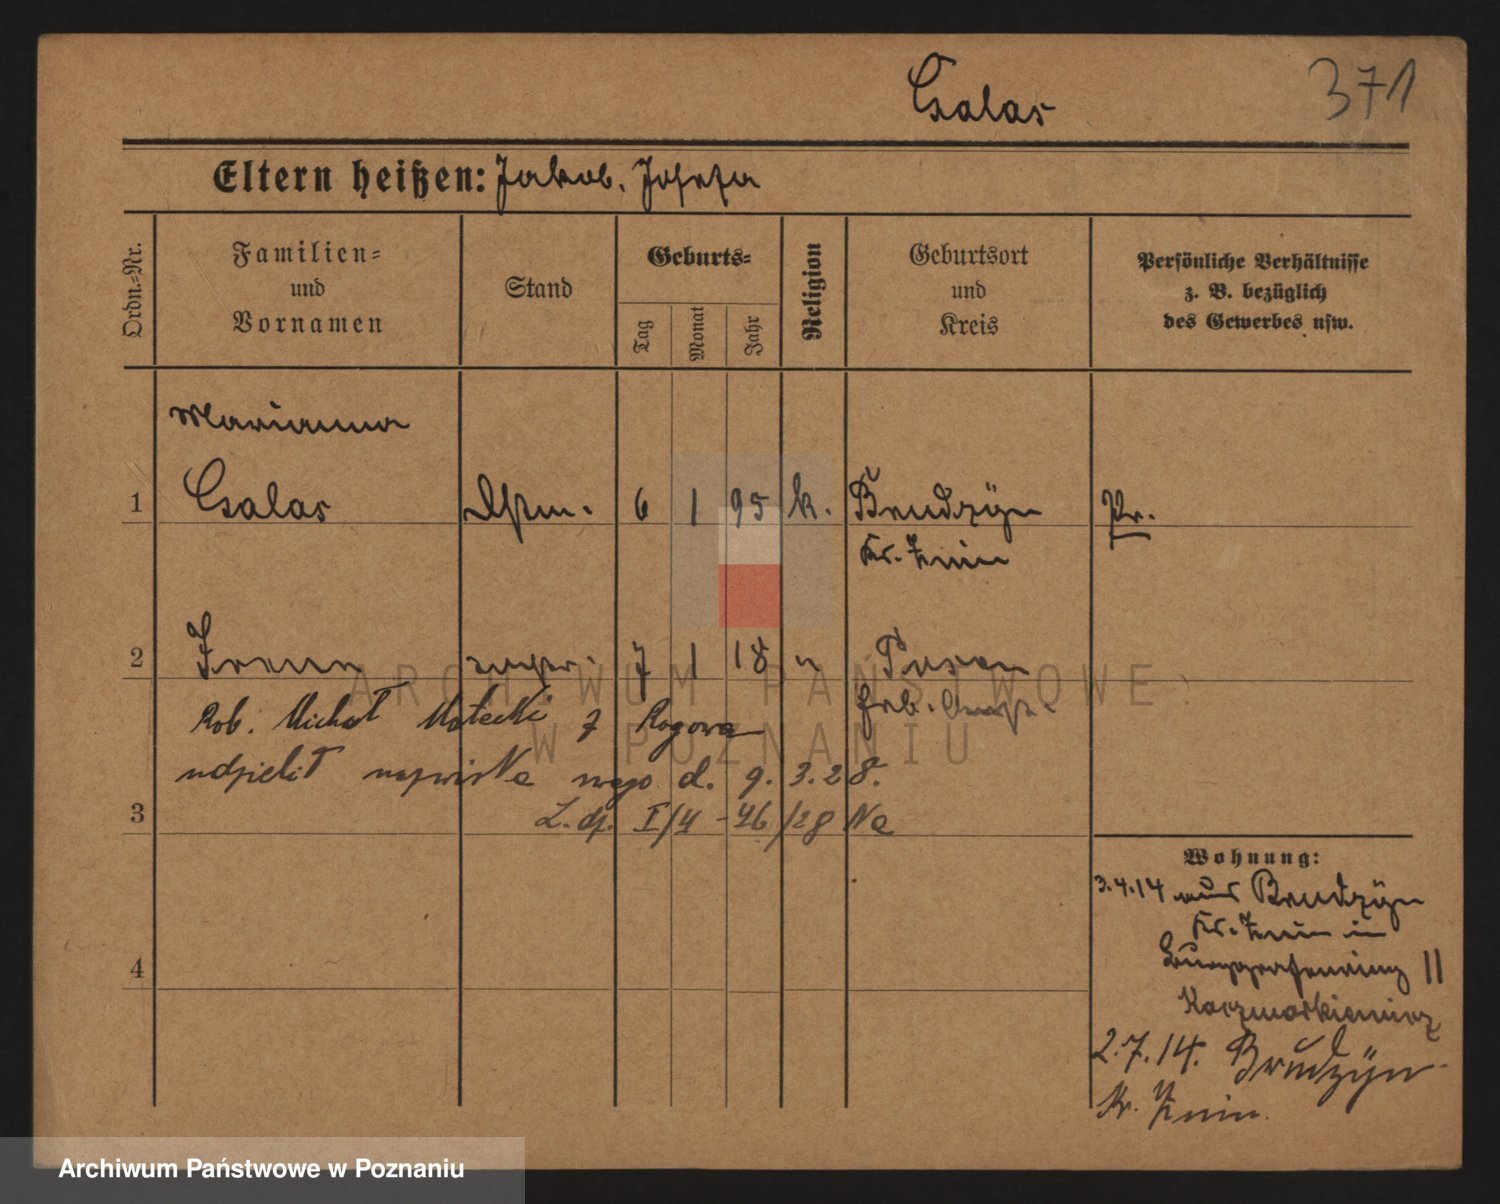 Csalas
371
Eltern heißen: Jakob. Josefa
Ordn.=Nr.
Familien=
und
Vornamen
Stand
Geburts=
Tag
Monat
Jahr
Religion
Geburtsort
und
Kreis
Persönliche Verhältnisse
z. B. bezüglich
des Gewerbes usw.
Marianna
1 Csalas Dstm. 6 1 95 k. Brudzyn Pr.
Kr. Znin
2 Irena 7 1 18 " Posen
ARCHIWUM PAŃSTWOWE
W POZNANIU
Rob. Michał Matecki z Rogowa
udzielił nazwiska swego d. 9. 3. 28.
L. dz. I/4 - 46/28 Na
3
4
Wohnung:
3.4.14 aus Brudzyn
Kr. Znin in
Burggrafenring 11
Kaczmarkiewicz
2.7.14. Brudzyn
Kr. Znin.
Archiwum Państwowe w Poznaniu